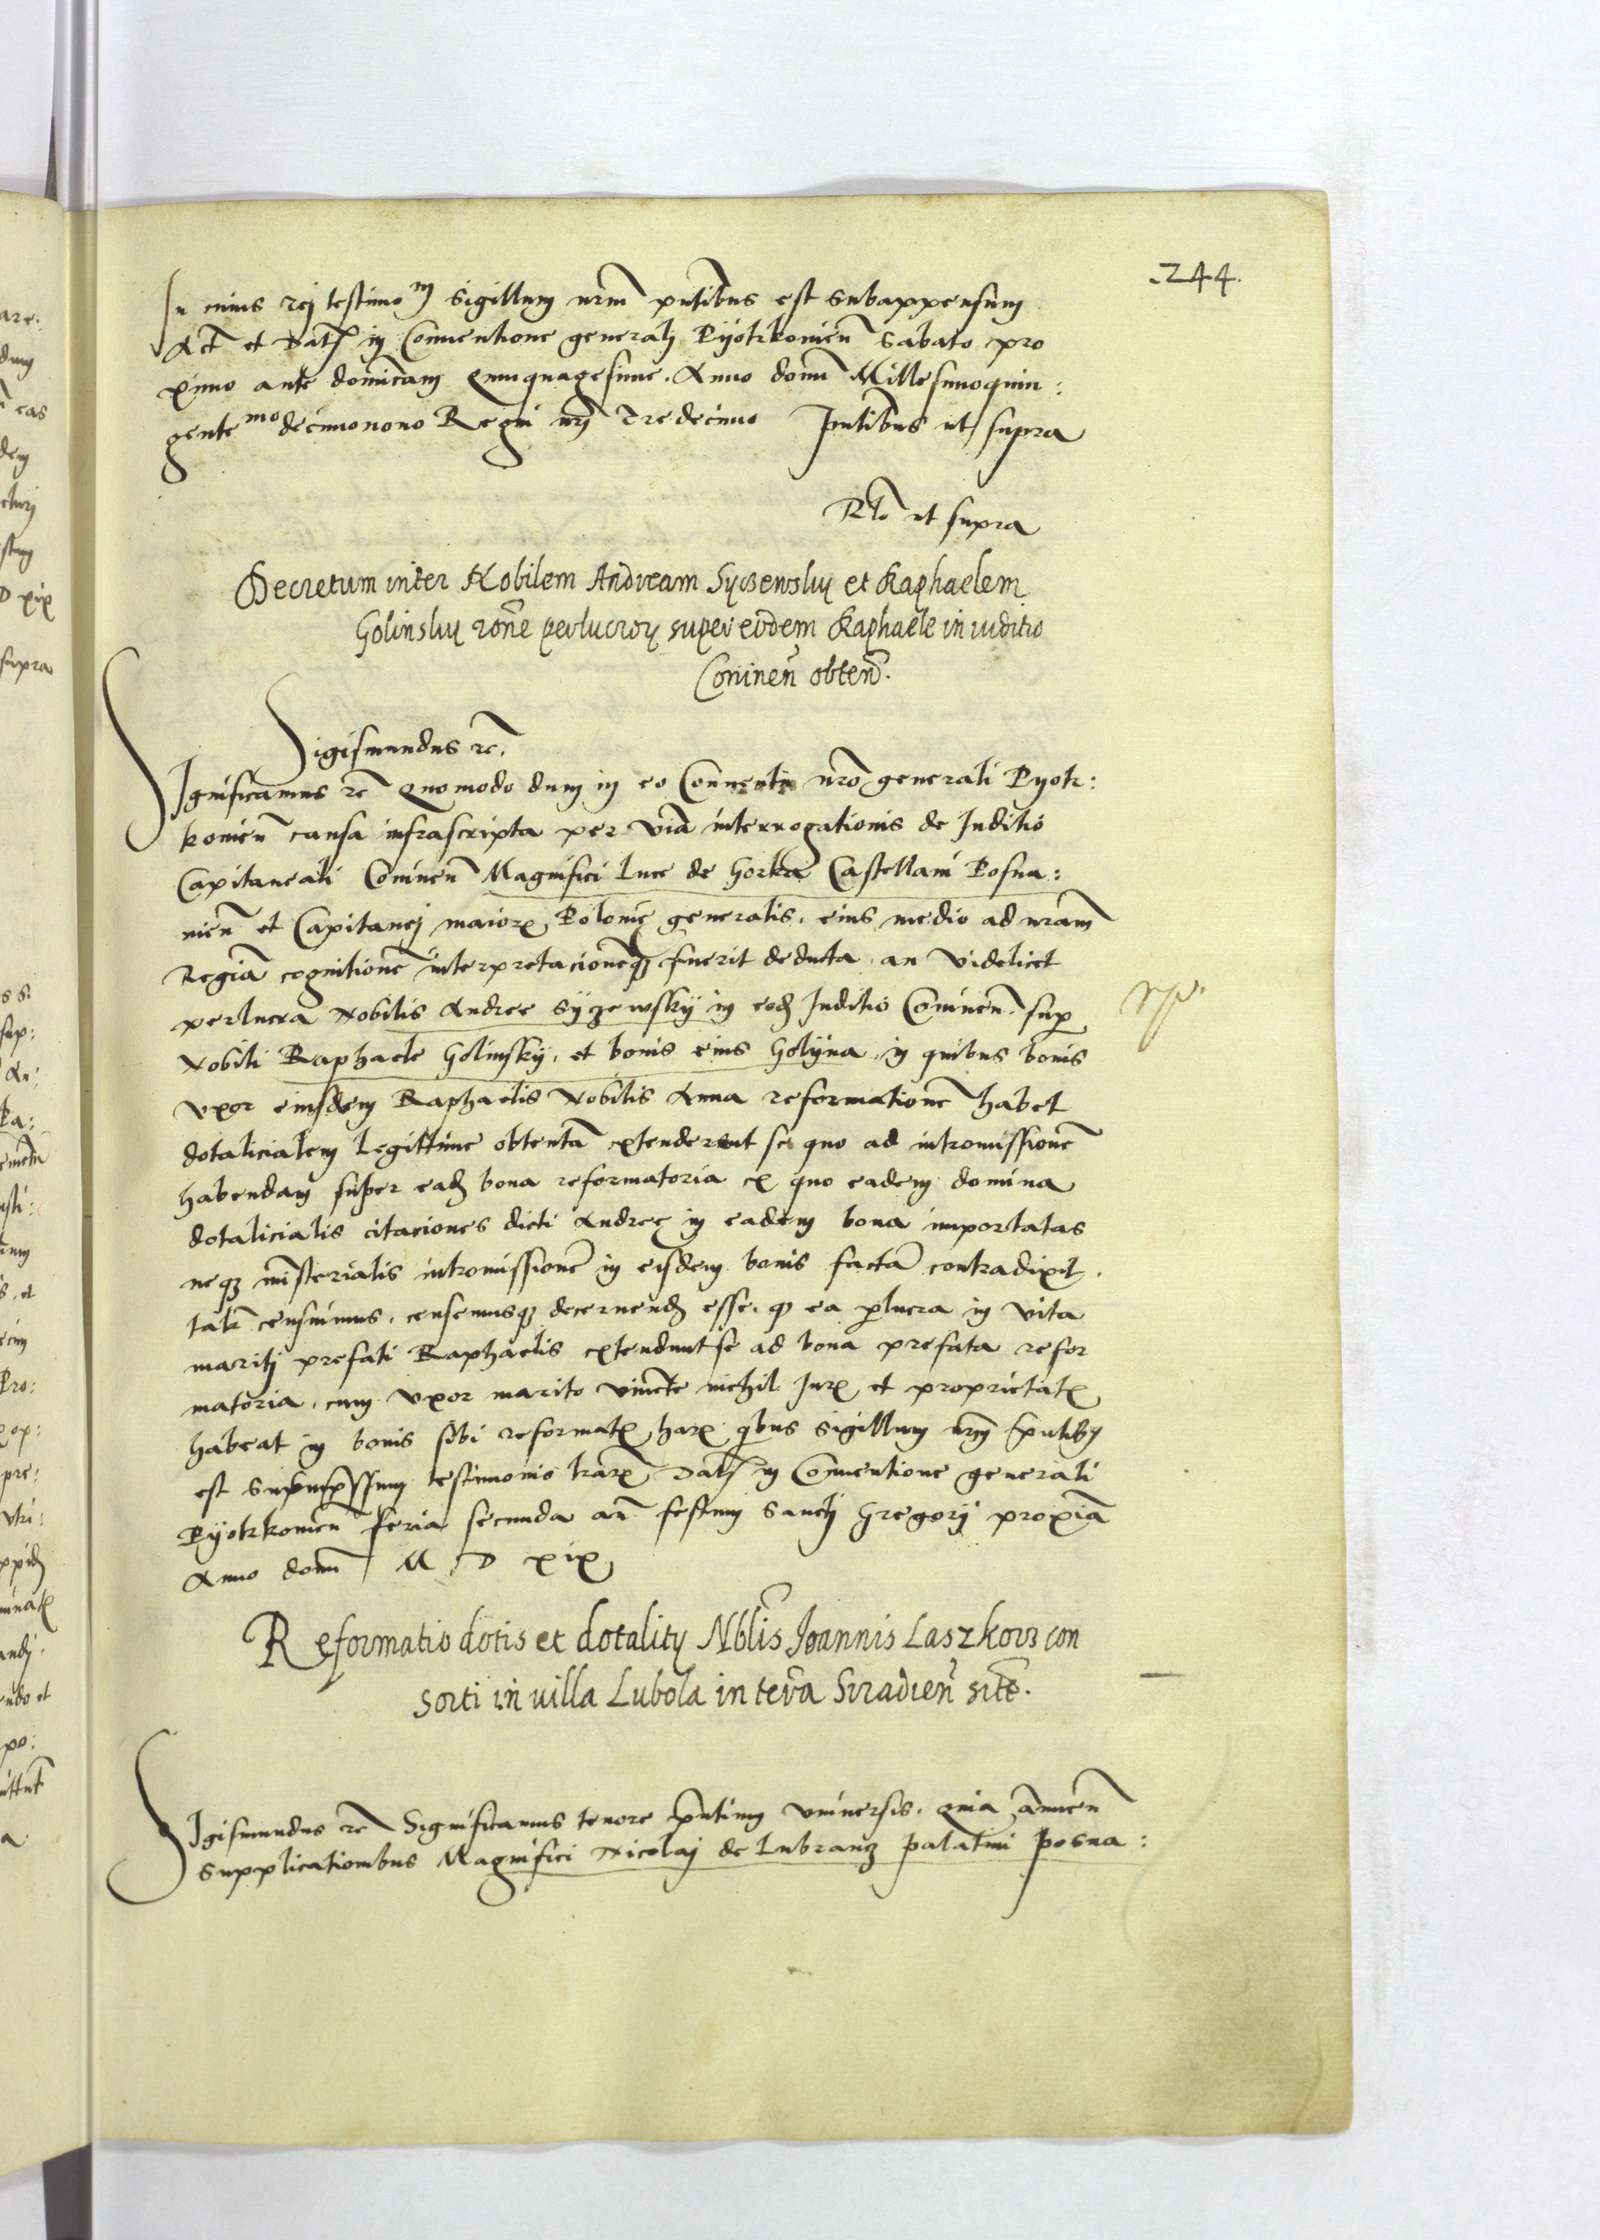 .244.
In cuius rej testimom̅ sigillum nr̅m pn̅tibus est subappensum
Act̅ et Dat̅ in Conuentione generalj Pyotrkouien̅ Sabato pro
ximo ante dominicam Quinquagesime. Anno domi̅ Millesimoquin:
gentemo decimonono Regni nrj̅ Tredecimo pn̅tibus ut supra
Rl̅o ut supra
Decretum inter Nobilem Andream Syzewsky et Raphaelem
Golinsky rōne perlucror̨ super eodem Raphaele in iuditio
Coninen̅ obten̅.
Sigismundus rc̅.
Significamus rc̅ Quomodo dum in eo Conuentu nr̅o generali Pyotr:
kouien̅ causa infrascripta per via̅ interrogationis de Juditio
Capitaneali Coninen̅ Magnifici Luce de Gorka Castellani Posna:
nien̅ et Capitanej maior̨ Polonie generalis, eius medio ad nr̅am
Regia̅ cognitione̅ interpretacione̅qȝ fuerit deducta, an videlicet
perlucra Nobilis Andree Syzewsky in eod̨ Juditio Coninen̅ sup̱
Nobili Raphaele Golinsky, et bonis eius Golyna in quibus bonis
vxor eiusdem Raphaelis Nobilis Anna reformatione̅ habet
dotalicialem legittime obtenta̅ extenderent se quo ad intromissione̅
habendam super ead̨ bona reformatoria ex quo eadem domina
dotalicialis citaciones dicti Andree in eadem bona importatas
neqȝ mi̅sterialis intromissione̅ in eisdem bonis facta̅ contradixit.
tal̅r censuimus, censemusqȝ decernend̨ esse, qȝ ea p̱lucra in vita
maritj prefati Raphaelis extendunt se ad bona prefata refor
matoria, cum vxor marito viue̅te nichil Jur̨ et proprietat̨
habeat in bonis sibi reformat̨ har̨ q̇bus sigillum nr̅m pn̅tibȝ
est subimp̅ssum testimonio l̅rar̨ Dat̅ in Conuentione generali
Pyotrkouien̅ feria secunda an̅ festum Sanctj Gregorij proxia̅
Anno domi̅ M D xix
Reformatio dotis et dotality Nb̅lis Joannis Laszkowȝ con
sorti in uilla Lubola in ter̅a Siradien̅ site̅.
Sigismundus rc̅ Significamus tenore pn̅tium vniuersis. Quia annuen̅
supplicationibus Magnifici Nicolaj de Lubrancȝ palatini posna: